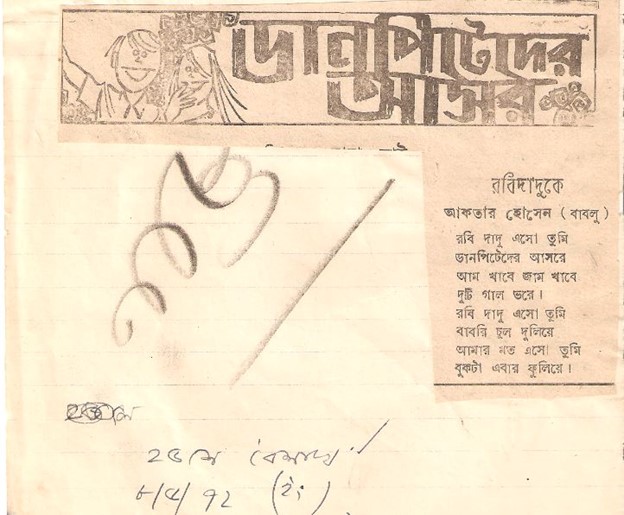 ডানপিটেদের
আসর
রবিদাদুকে
আকতার হোসেন ( বাবলু )
রবি দাদু এসো তুমি
ডানপিটেদের আসরে
আম খাবে জাম খাবে
দুটি গাল ভরে।
রবি দাদু এসো তুমি
বাবরি চুল দুলিয়ে
আমার মত এসো তুমি
বুকটা এবার ফুলিয়ে।
২৫শে বৈশাখ
(ইং)